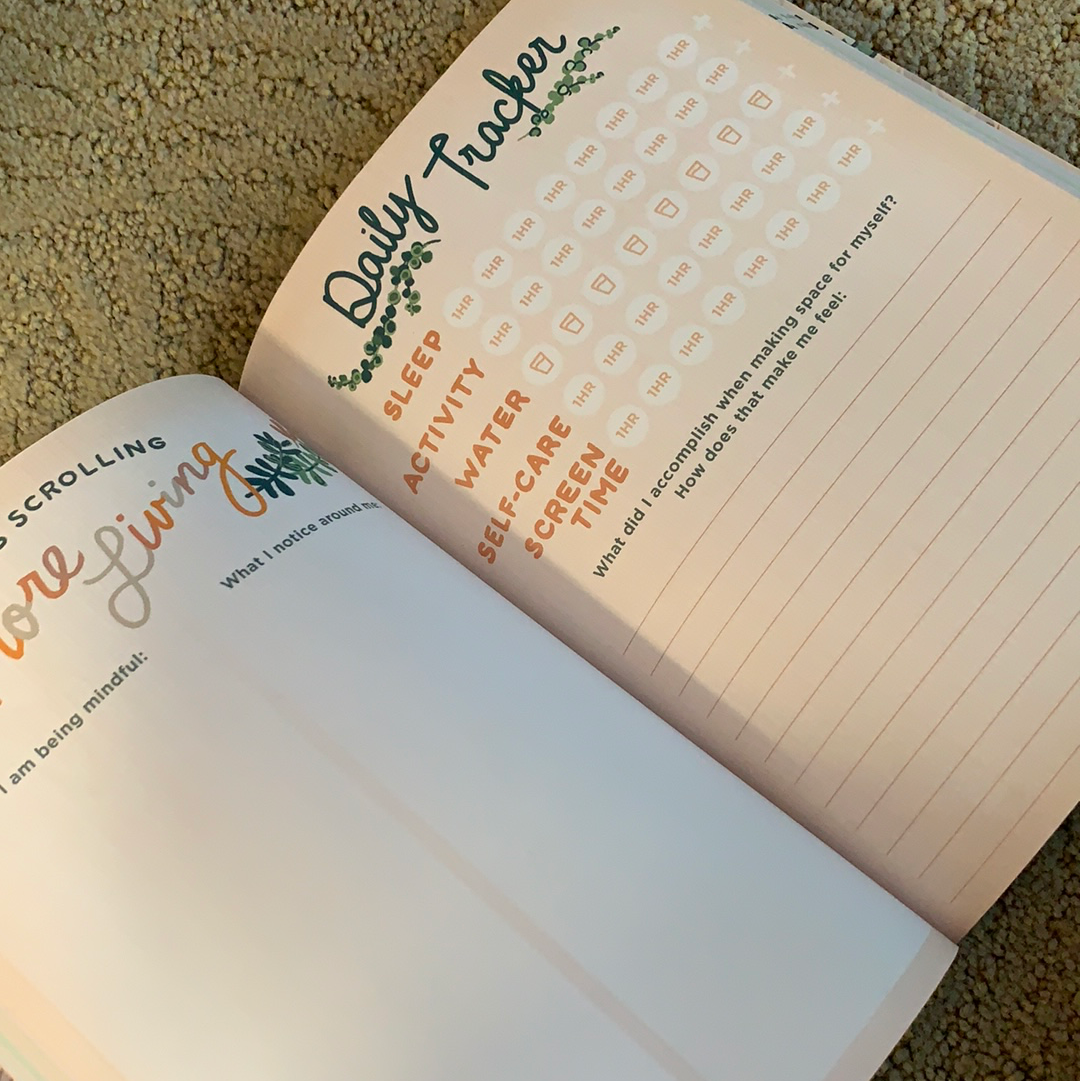 SCROLLING
Living
I am being mindful:
What I notice around me:
Daily Tracker
SLEEP 1HR 1HR 1HR 1HR 1HR 1HR 1HR 1HR +
ACTIVITY 1HR 1HR 1HR 1HR 1HR 1HR 1HR 1HR +
WATER +
SELF-CARE 1HR 1HR 1HR 1HR 1HR 1HR 1HR 1HR +
SCREEN
TIME 1HR 1HR 1HR 1HR 1HR 1HR 1HR 1HR +
What did I accomplish when making space for myself?
How does that make me feel: